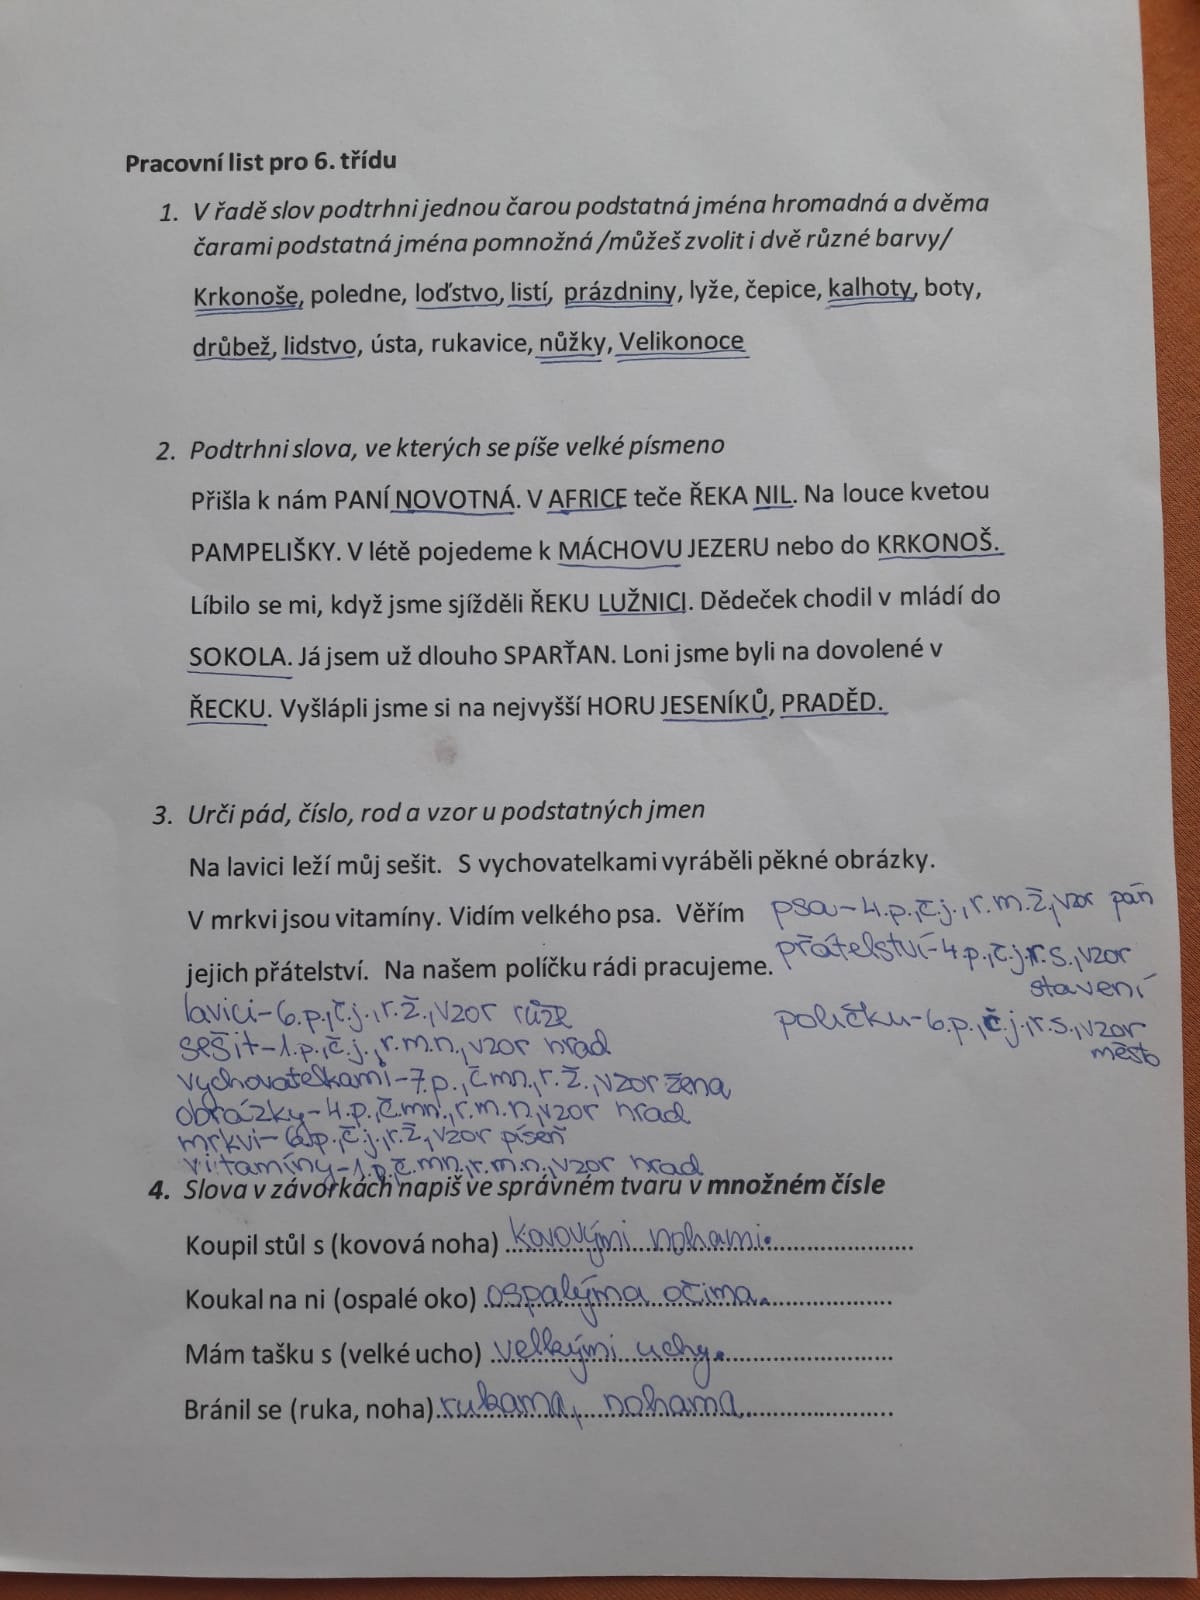 Pracovní list pro 6. třídu
1. V řadě slov podtrhni jednou čarou podstatná jména hromadná a dvěma
čarami podstatná jména pomnožná /můžeš zvolit i dvě různé barvy/
Krkonoše, poledne, loďstvo, listí, prázdniny, lyže, čepice, kalhoty, boty,
drůbež, lidstvo, ústa, rukavice, nůžky, Velikonoce
2. Podtrhni slova, ve kterých se píše velké písmeno
Přišla k nám PANÍ NOVOTNÁ. V AFRICE teče ŘEKA NIL. Na louce kvetou
PAMPELIŠKY. V létě pojedeme k MÁCHOVU JEZERU nebo do KRKONOŠ.
Líbilo se mi, když jsme sjížděli ŘEKU LUŽNICI. Dědeček chodil v mládí do
SOKOLA. Já jsem už dlouho SPARŤAN. Loni jsme byli na dovolené v
ŘECKU. Vyšlápli jsme si na nejvyšší HORU JESENÍKŮ, PRADĚD.
3. Urči pád, číslo, rod a vzor u podstatných jmen
Na lavici leží můj sešit. S vychovatelkami vyráběli pěkné obrázky.
V mrkvi jsou vitamíny. Vidím velkého psa. Věřím
jejich přátelství. Na našem políčku rádi pracujeme.
psa-4.p.,č.j.,r.m.ž,vzor pán
přátelství-4.p.,č.j.r.s.,vzor
stavení
políčku-6.p.,č.j.,r.s.,vzor
město
lavici-6.p.,č.j.,r.ž.,vzor růže
sešit-1.p.,č.j.,r.m.n.,vzor hrad
vychovatelkami-7.p.,č.mn.,r.ž.,vzor žena
obrázky-4.p.,č.mn.,r.m.n,vzor hrad
mrkvi-6.p.,č.j.,r.ž,vzor píseň
vitamíny-1.p.,č.mn.,r.m.n.,vzor hrad
4. Slova v závorkách napiš ve správném tvaru v množném čísle
Koupil stůl s (kovová noha) kovovými nohami.
Koukal na ni (ospalé oko) ospalýma očima.
Mám tašku s (velké ucho) velkými uchy.
Bránil se (ruka, noha) rukama, nohama